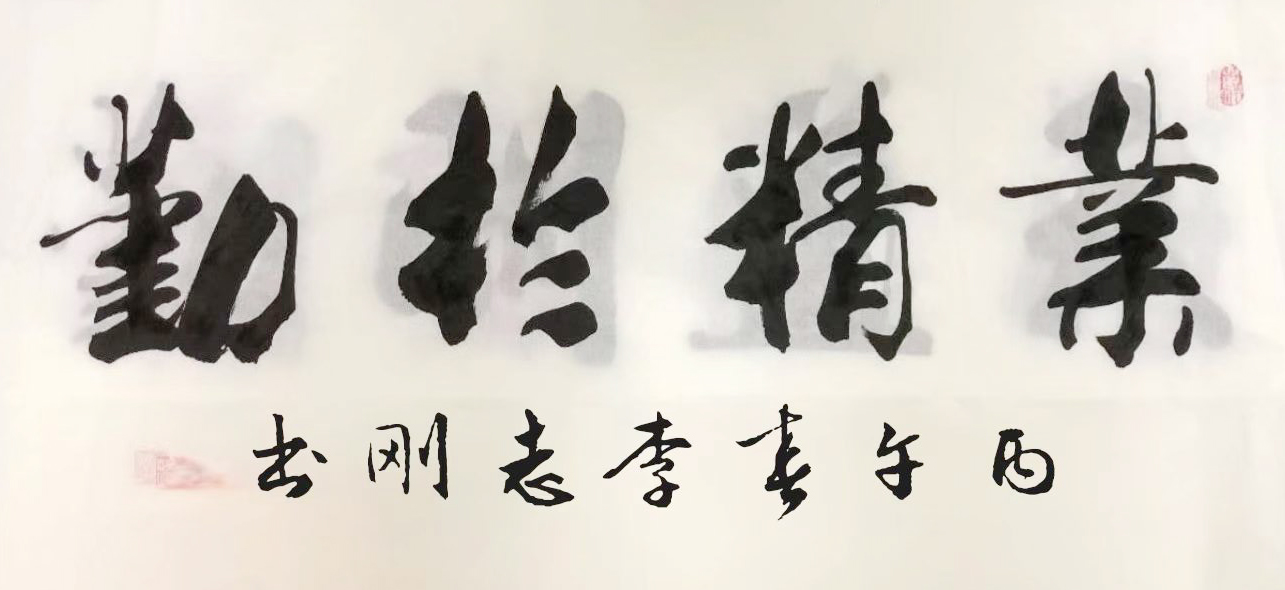 業精於勤
丙午春李志刚书